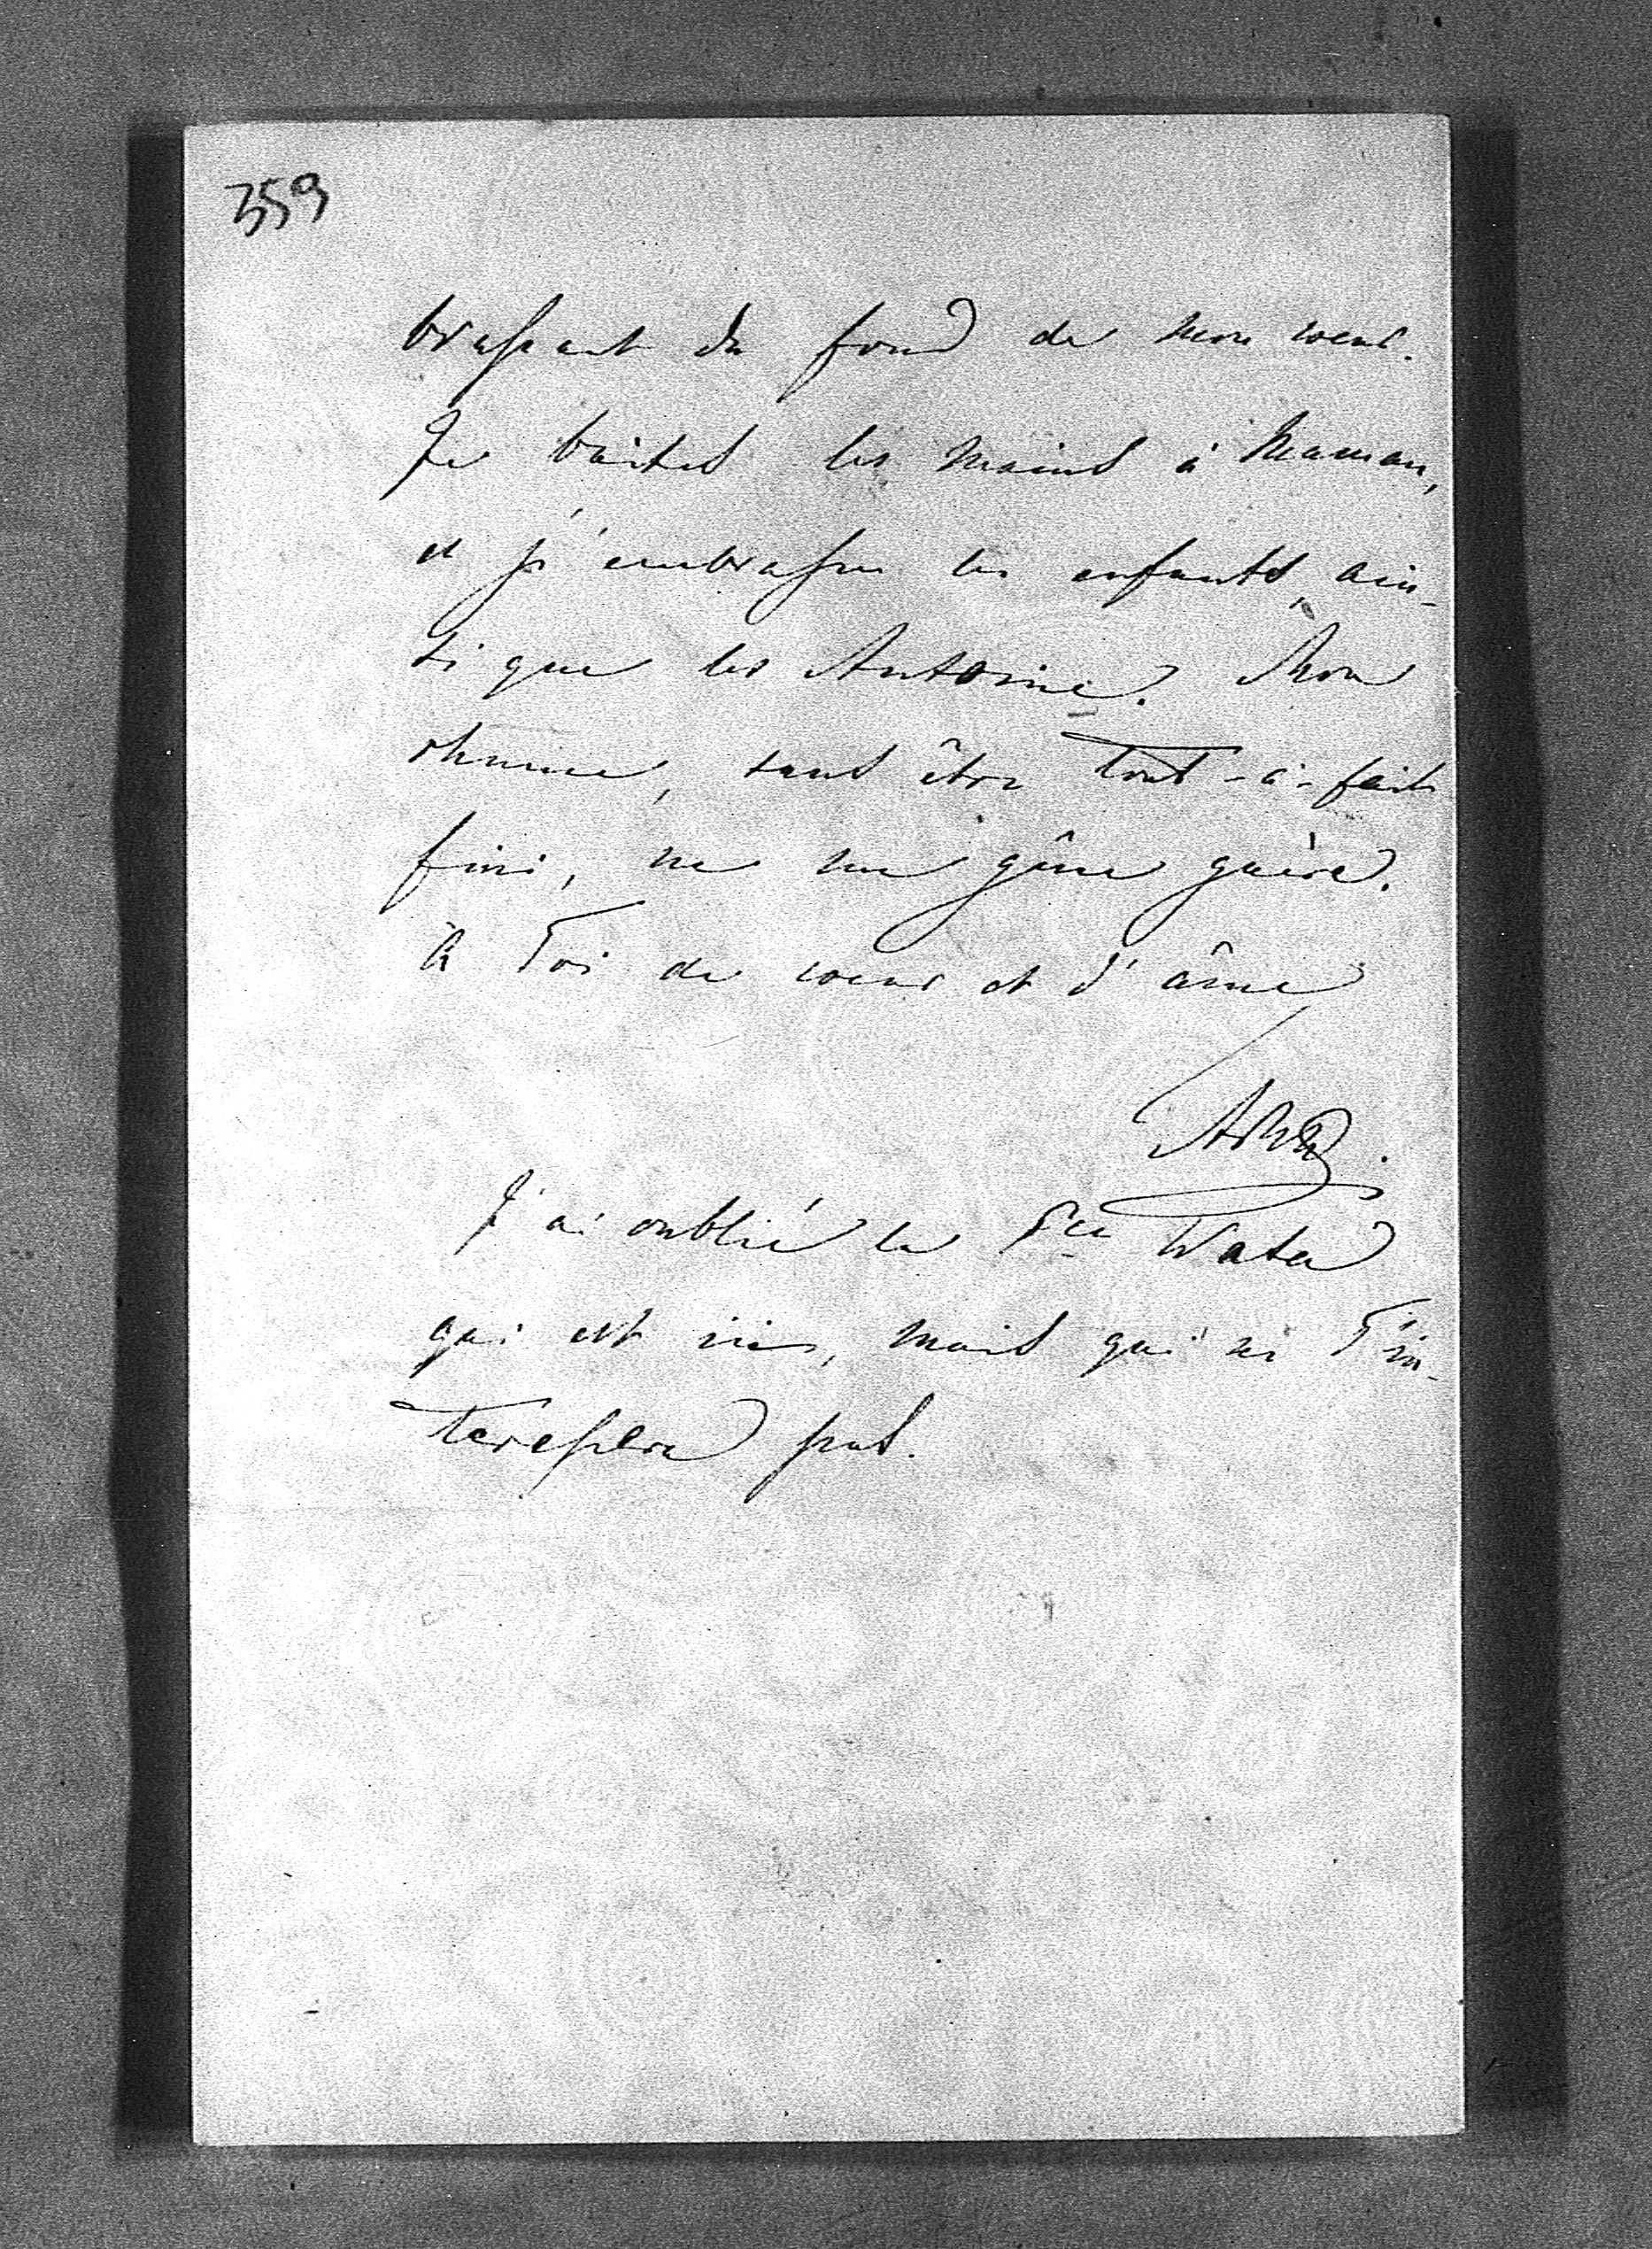 359
brassant du fond de mon coeur.
Je baise les mains à Maman,
et j'embrasse les enfants, ain-
si que les Antoine. Mon
rhume, sans être tout-à-fait
fini, ne me gêne guère.
à Toi de coeur et d'âme
J'ai oublié la Pce Wasa
qui est ici, mais qui ne T'in-
teressera pas.